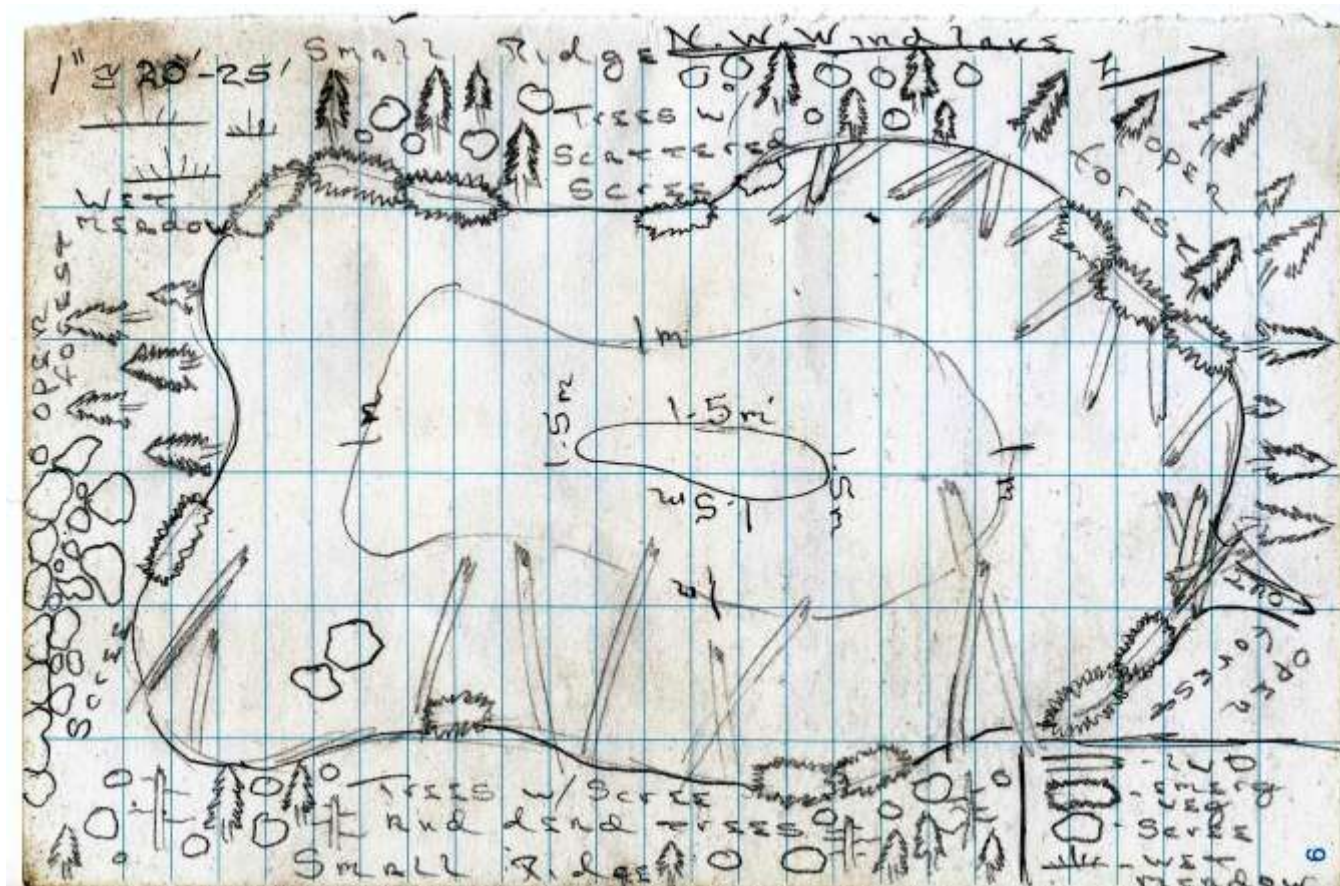 1" ≅ 20'-25'
Small Ridge
N.W. Wind Lake
Trees w/
Scattered
Scree
Wet
Meadow
open
forest
open
forest
1m
1m
1.5m
1.5m
1.5m
1.5m
m
Scree
open
forest
Trees w/ Scree
And dead trees
Small Ridge
LWD
- emerg
veg
- Scree
- Wet
6